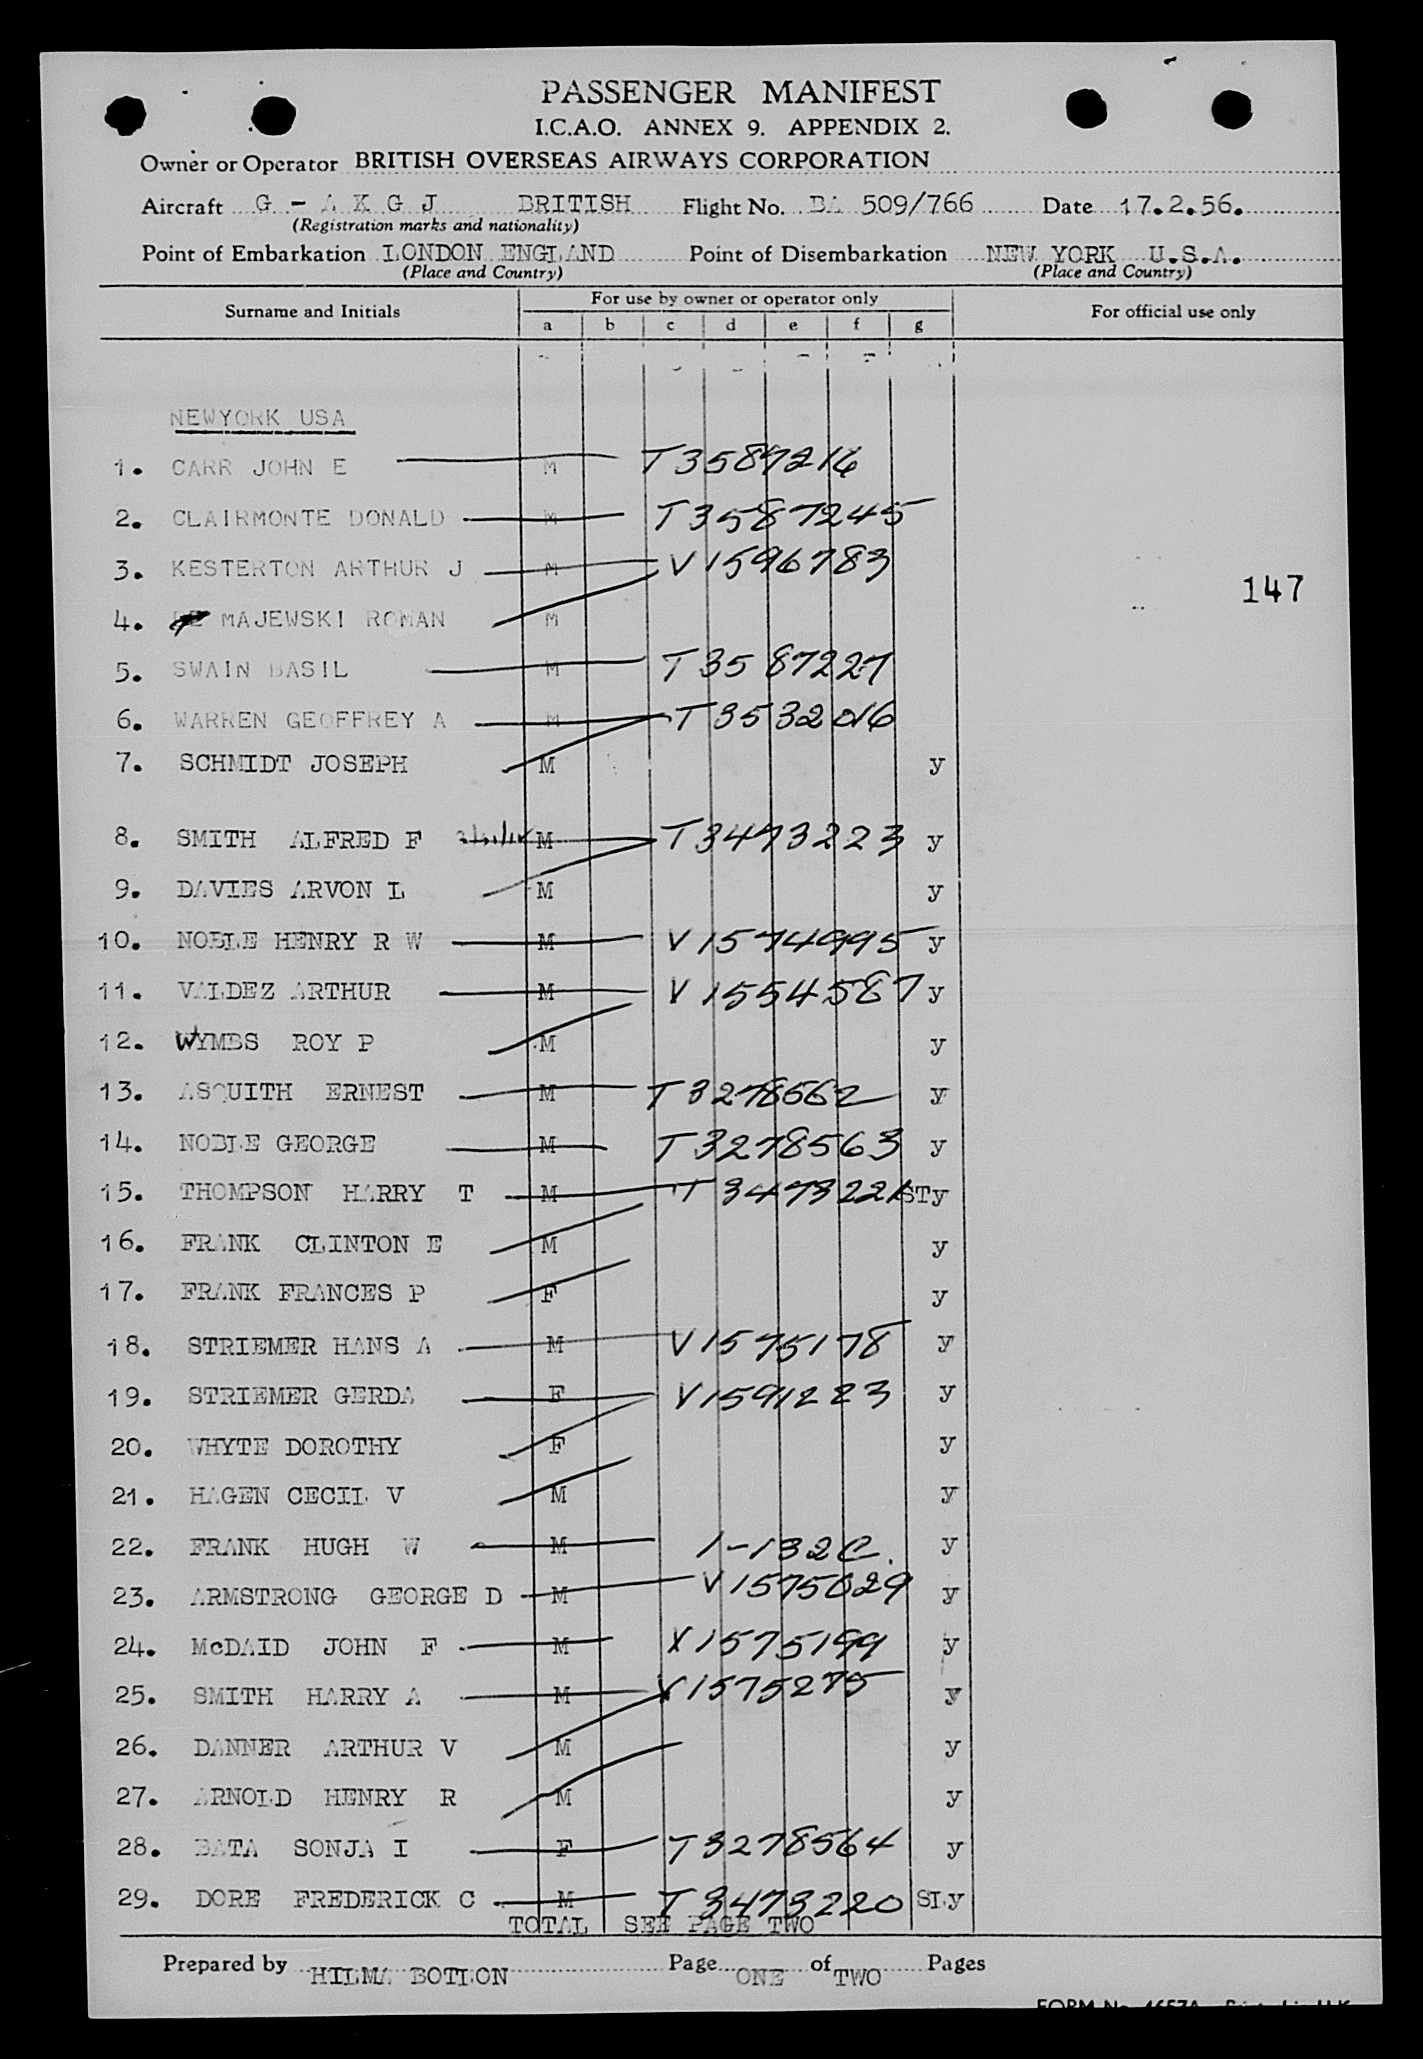 PASSENGER MANIFEST
I.C.A.O. ANNEX 9. APPENDIX 2.
Owner or Operator BRITISH OVERSEAS AIRWAYS CORPORATION
Aircraft G - A K G J BRITISH Flight No. BA 509/766 Date 17.2.56.
(Registration marks and nationality)
Point of Embarkation LONDON ENGLAND Point of Disembarkation NEW YORK U.S.A.
(Place and Country) (Place and Country)
Surname and Initials For use by owner or operator only For official use only
a b c d e f g
NEWYORK USA
1. CARR JOHN E M T3587216
2. CLAIRMONTE DONALD M T3587245
3. KESTERTON ARTHUR J M V1596783
147
4. MAJEWSKI ROMAN M
5. SWAIN BASIL M T3587227
6. WARREN GEOFFREY A M T3532016
7. SCHMIDT JOSEPH M y
8. SMITH ALFRED F M T3473223 y
9. DAVIES ARVON L M y
10. NOBLE HENRY R W M V1574995 y
11. VALDEZ ARTHUR M V1554587 y
12. WYMBS ROY P M y
13. ASQUITH ERNEST M T3278562 y
14. NOBLE GEORGE M T3278563 y
15. THOMPSON HARRY T M T3473221 STy
16. FRANK CLINTON E M y
17. FRANK FRANCES P F y
18. STRIEMER HANS A M V1575178 y
19. STRIEMER GERDA F V1591223 y
20. WHYTE DOROTHY F y
21. HAGEN CECIL V M y
22. FRANK HUGH W M 1-132C. y
23. ARMSTRONG GEORGE D M V1575029 y
24. McDAID JOHN F M V1575199 y
25. SMITH HARRY A M V1575275 y
26. DANNER ARTHUR V M y
27. ARNOLD HENRY R M y
28. BATA SONJA I F T3278564 y
29. DORE FREDERICK C M T3473220 SLy
TOTAL SEE PAGE TWO
Prepared by HILMA BOTLON Page ONE of TWO Pages
FORM No. 4657A